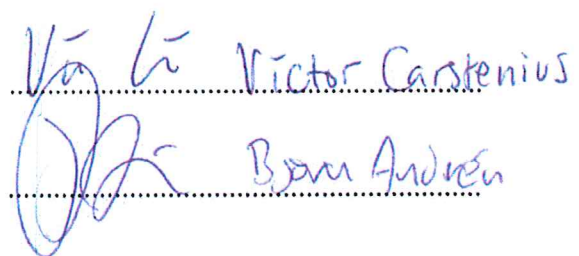 Victor Carstenius
Björn Andrén